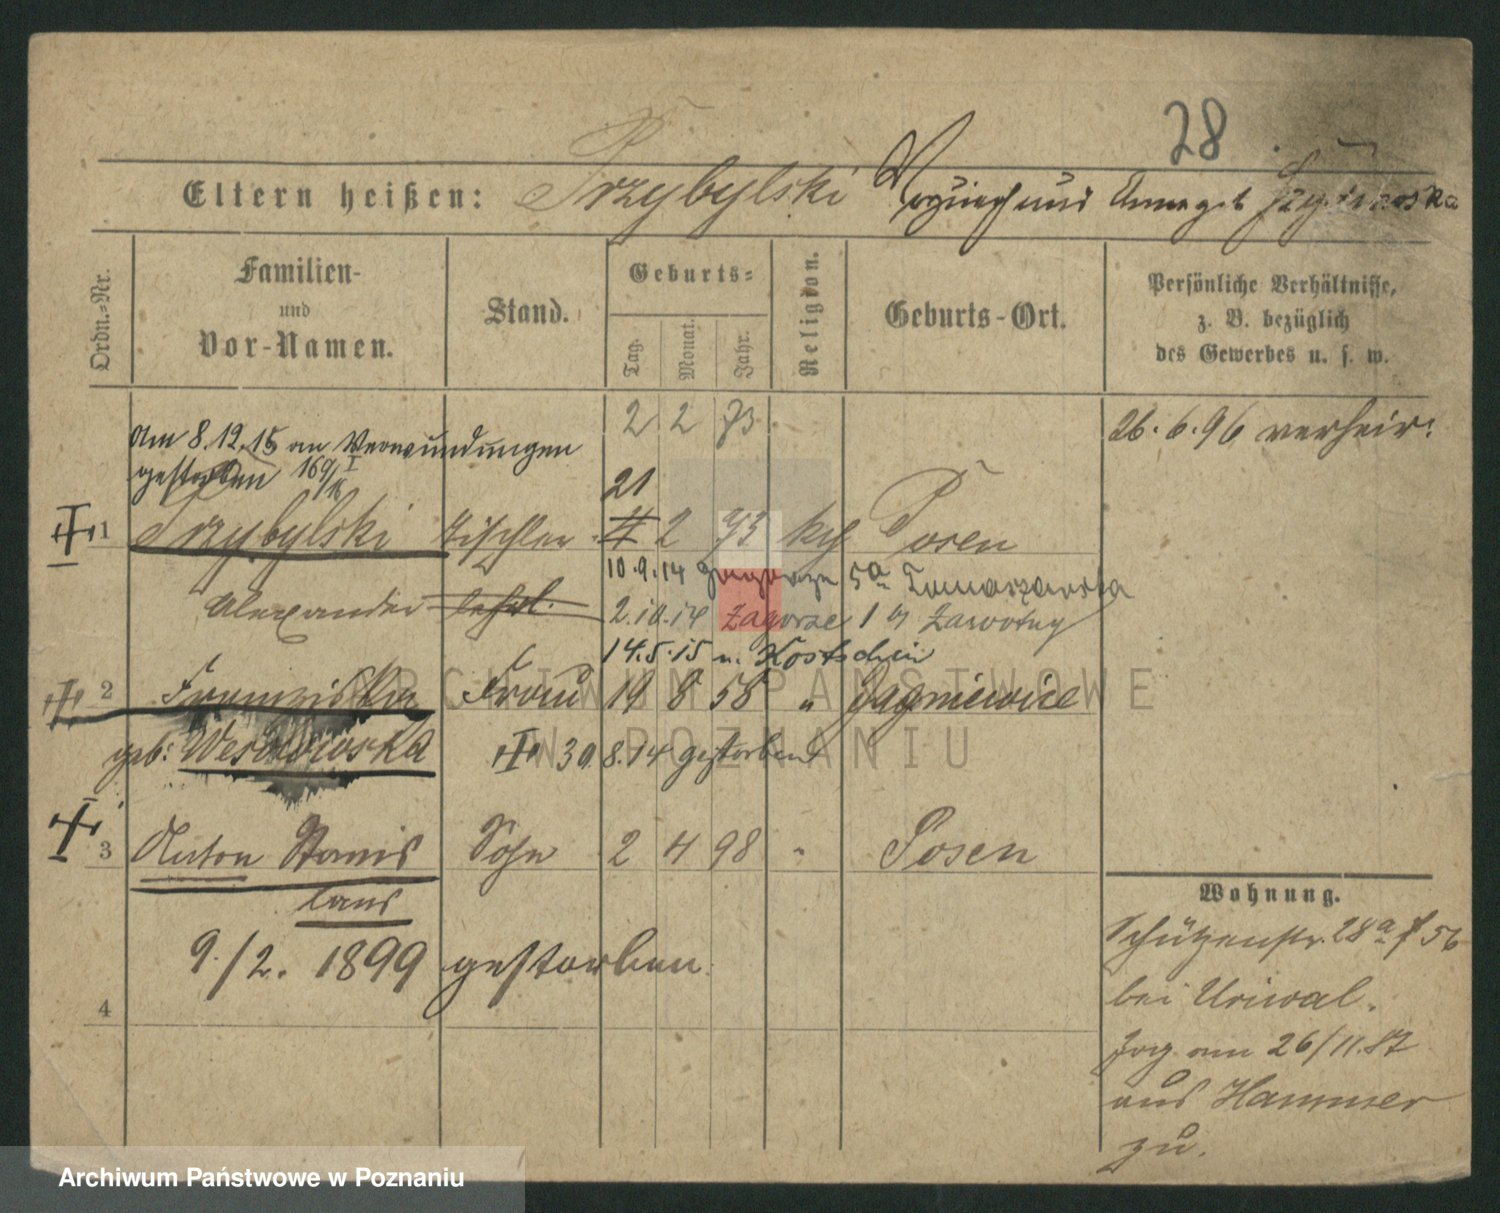 28
Eltern heißen: Przybylski und Anna geb
Ordn.-Nr.
Familien- und Vor-Namen.
Stand.
Geburts-
Tag. Monat. Jahr.
Religion.
Geburts-Ort.
Persönliche Verhältnisse, z. B. bezüglich des Gewerbes u. s. w.
2 2 73
26.6.96 verheir:
Am 8.12.15 an Verwundungen
gestorben
21
1 Przybylski Tischler 2 73 kth Posen
10.9.14 5a
Alexander
2.10.14 Zagorze 1
14.5.15 n. Kostschin
2 Franziska Frau 19 8 58 " Jagniewice
geb: 30.8.14 gestorben
3 Anton Stanis Sohn 2 4 98 " Posen
laus
9./2. 1899 gestorben.
4
Wohnung.
Schützenstr. 28a
bei Uriwal.
Zog am 26/11.87
aus Hammer
zu.
ARCHIWUM PAŃSTWOWE
W POZNANIU
Archiwum Państwowe w Poznaniu